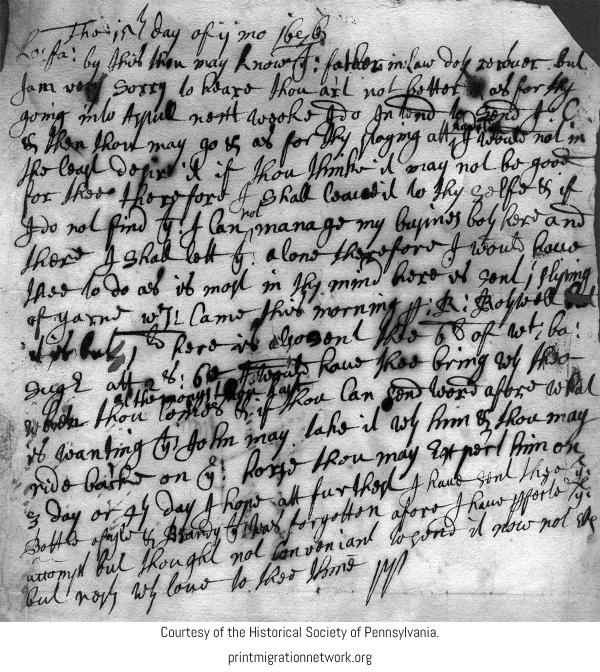 The 15th day of ye mo
by this thou may know yt father in law doth recover but
I am very sorry to heare thou art not better as for thy
going into next weeke I do Intend to send J: C
& then thou may go & as for thy staging att I would not in
the least desire it if thou thinke it may not be good
for thee therefore I shall leave it to thy selfe & if
I do not find yt I can not manage my busines both here and
there I shall lett ye alone therefore I would have
thee to do as is most in thy mind here is sent
of yarne wch Came this morning
here is also sent thee of wt
att I would have thee bring with thee
when thou comes & if thou can send word afore what
is wanting yt John may take it wth him & thou may
ride backe on ye horse thou may Expect him on
3 day or 4th day I hope att furthest I have sent thee ye
Bottle of Brandy yt was forgotten afore I have
attempt but thought not Conveniant to send it now not
but rests wth love to thee thine
Courtesy of the Historical Society of Pennsylvania.
printmigrationnetwork.org